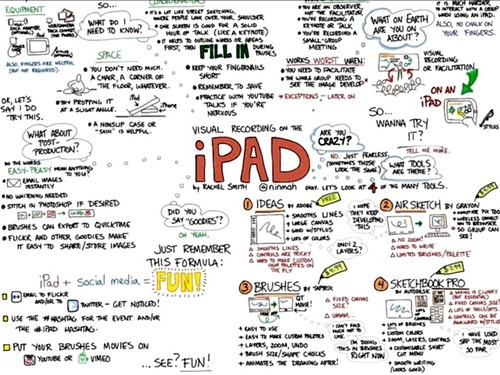 EQUIPMENT
SO...
WHAT DO I
NEED TO KNOW?
ALSO, FINGERS ARE HELPFUL
(BUT NOT REQUIRED)
SPACE
YOU DON'T NEED MUCH.
A CHAIR, A CORNER OF
THE FLOOR, WHATEVER.
TRY PROPPING IT
AT A SLIGHT ANGLE.
A NONSLIP CASE OR
"SKIN" IS HELPFUL.
OK, LET'S
SAY I DO
TRY THIS.
WHAT ABOUT
POST-
PRODUCTION?
IT'S A LOT LIKE STREET SKETCHING,
WHERE PEOPLE LOOK OVER YOUR SHOULDER
ONE SCREEN IS GOOD FOR A SOLID
HOUR OF TALK (LIKE A KEYNOTE)
IT HELPS TO OUTLINE WORDS OR AREAS
FIRST, THEN FILL IN DURING
PAUSES
KEEP YOUR FINGERNAILS
SHORT
REMEMBER TO SAVE
PRACTICE WITH YOUTUBE
TALKS IF YOU'RE
NERVOUS
YOU ARE AN OBSERVER,
NOT THE FACILITATOR
YOU'RE RECORDING A
KEYNOTE OR TALK
YOU'RE RECORDING A
SMALL-GROUP
MEETING
WORKS WORST WHEN:
YOU NEED TO FACILITATE
THE WHOLE GROUP NEEDS TO
SEE THE IMAGE DEVELOP
EXCEPTIONS - LATER ON
WHAT ON EARTH
ARE YOU ON
ABOUT?
IT IS MUCH HARDER
WHEN USING AN IPAD.
ALSO, NO CHALK ON
YOUR FINGERS.
VISUAL
RECORDING
OR FACILITATION
ON AN
iPAD
SO...
WANNA TRY
IT?
TELL ME MORE.
WHAT TOOLS
ARE THERE?
VISUAL RECORDING ON THE
iPAD
by RACHEL SMITH @ninmah
ARE YOU
CRAZY?
NO. JUST FEARLESS.
(SOMETIMES THOSE
LOOK THE SAME.)
OKAY. LET'S LOOK AT 4 OF THE MANY TOOLS.
EASY-PEASY
MEAN ANYTHING
TO YOU?
EMAIL IMAGES
INSTANTLY
NO WHITENING NEEDED
STITCH IN PHOTOSHOP IF DESIRED
BRUSHES CAN EXPORT TO QUICKTIME
FLICKR AND OTHER GOODIES MAKE
IT EASY TO SHARE/STORE IMAGES
DID YOU
SAY "GOODIES"?
OH YEAH.
JUST REMEMBER
THIS FORMULA:
iPad + social media = FUN!
EMAIL TO FLICKR
AND/OR TO TWITTER - GET NOTICED!
USE THE #HASHTAG FOR THE EVENT AND/OR
THE #IPAD HASHTAG.
PUT YOUR BRUSHES MOVIES ON
YOUTUBE OR VIMEO
...SEE? FUN!
1 IDEAS BY ADOBE
FREE
SMOOTHS LINES
LARGE CANVAS
GOOD W/STYLUS
LOTS OF COLORS
SMOOTHS LINES
CONTROLS ARE TRICKY
HARD TO MAKE
YOUR PALETTES ON
THE FLY
I HOPE
THEY KEEP
DEVELOPING
THIS
ONLY 2
LAYERS?
2 AIR SKETCH BY QRAYON
BROWSER SO
GROUP CAN SEE!
NO ZOOM
HARD TO WRITE
LIMITED BRUSHES/PALETTE
3 BRUSHES BY TAPTRIX
QT
MOVIE!
EASY TO USE
EASY TO MAKE CUSTOM PALETTES
LAYERS, ZOOM, UNDO
BRUSH SIZE/SHAPE CHOICES
ANIMATES THE DRAWING AFTER!
FIXED CANVAS
SIZE?
UMMM...
CAN'T FIND
MUCH NOT TO
LIKE.
I'M DOING
THIS IN
BRUSHES
RIGHT NOW
4 SKETCHBOOK PRO
BY AUTODESK
LOTS OF BRUSHES
CUSTOM COLORS
ZOOM, LAYERS, CONTROLS
CUSTOMIZABLE SHORT
CUT MENU
SMOOTH WRITING
(LOOKS GOOD)
FIXED CANVAS SIZE
CONTROLS CAN BE
AWKWARD W/STYLUS
I HAVE
USED SKP
THE MOST
SO FAR